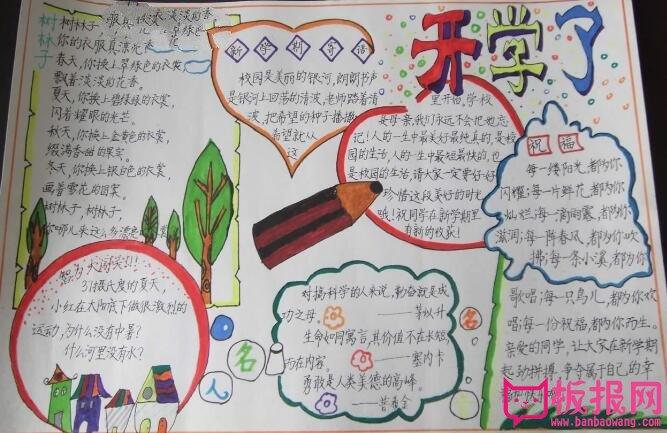 开学了
树林子
树林子
你的衣服真漂亮
春天，你换上翠绿色的衣裳
飘着淡淡的花香。
夏天，你换上碧绿绿的衣裳，
闪着耀眼的光芒。
秋天，你换上金黄色的衣裳，
缀满香甜的果实。
冬天，你换上银白色的衣裳，
画着雪花的图案。
树林子，树林子，
你哪儿来这么多漂亮的衣裳
新学期寄语
校园是美丽的银河，朗朗书声
是银河上回荡的清波，老师踏着清
波，把希望的种子播撒
希望就从
这
里开始，学校
是母亲，我们永远不会把她忘
记！人的一生中最美好最纯真的，是校
园的生活，人的一生中最短最快的，也
是校园的生活，请大家一定要好好
珍惜这段美好的时光
哦！祝同学在新学期里
有新的收获！
祝福
每一缕阳光，都为你
闪耀；每一片鲜花，都为你
灿烂；每一滴雨露，都为你
滋润；每一阵春风，都为你吹
拂；每一条小溪，都为你
歌唱；每一只鸟儿，都为你欢
唱；每一份祝福，都为你而生。
亲爱的同学，让大家在新学期
起劲拼搏，争夺属于自己的幸
智力大闯关！！！
31摄大度的夏天，
小红在太阳底下做很激烈的
运动，为什么没有中暑？
什么河里没有水？
名人名言
对搞科学的人来说，勤奋就是成
功之母。——茅以升
生命如同寓言，其价值不在长短，
而在内容。——塞内卡
勇敢是人类美德的高峰。
——普希金
板报网
www.banbaowang.com